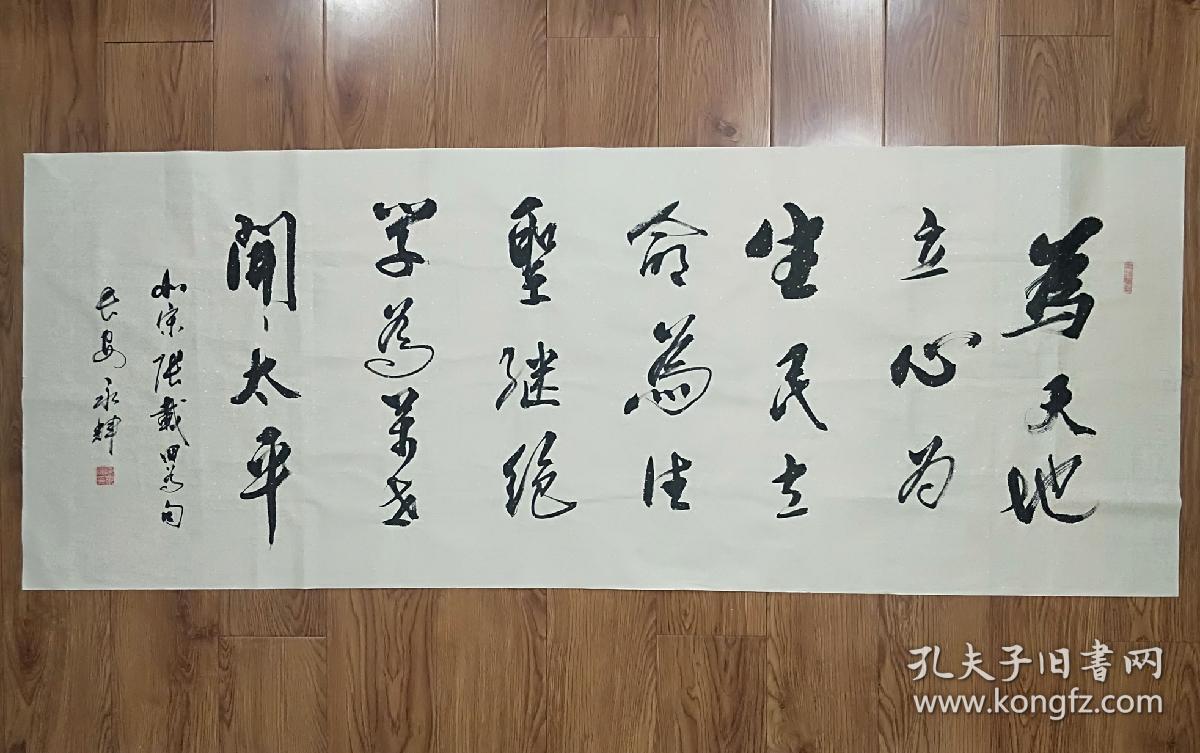 為天地
立心为
生民立
命為往
聖继绝
学為萬世
開太平
北宋張載四為句
长安永輝
孔夫子旧書网
www.kongfz.com